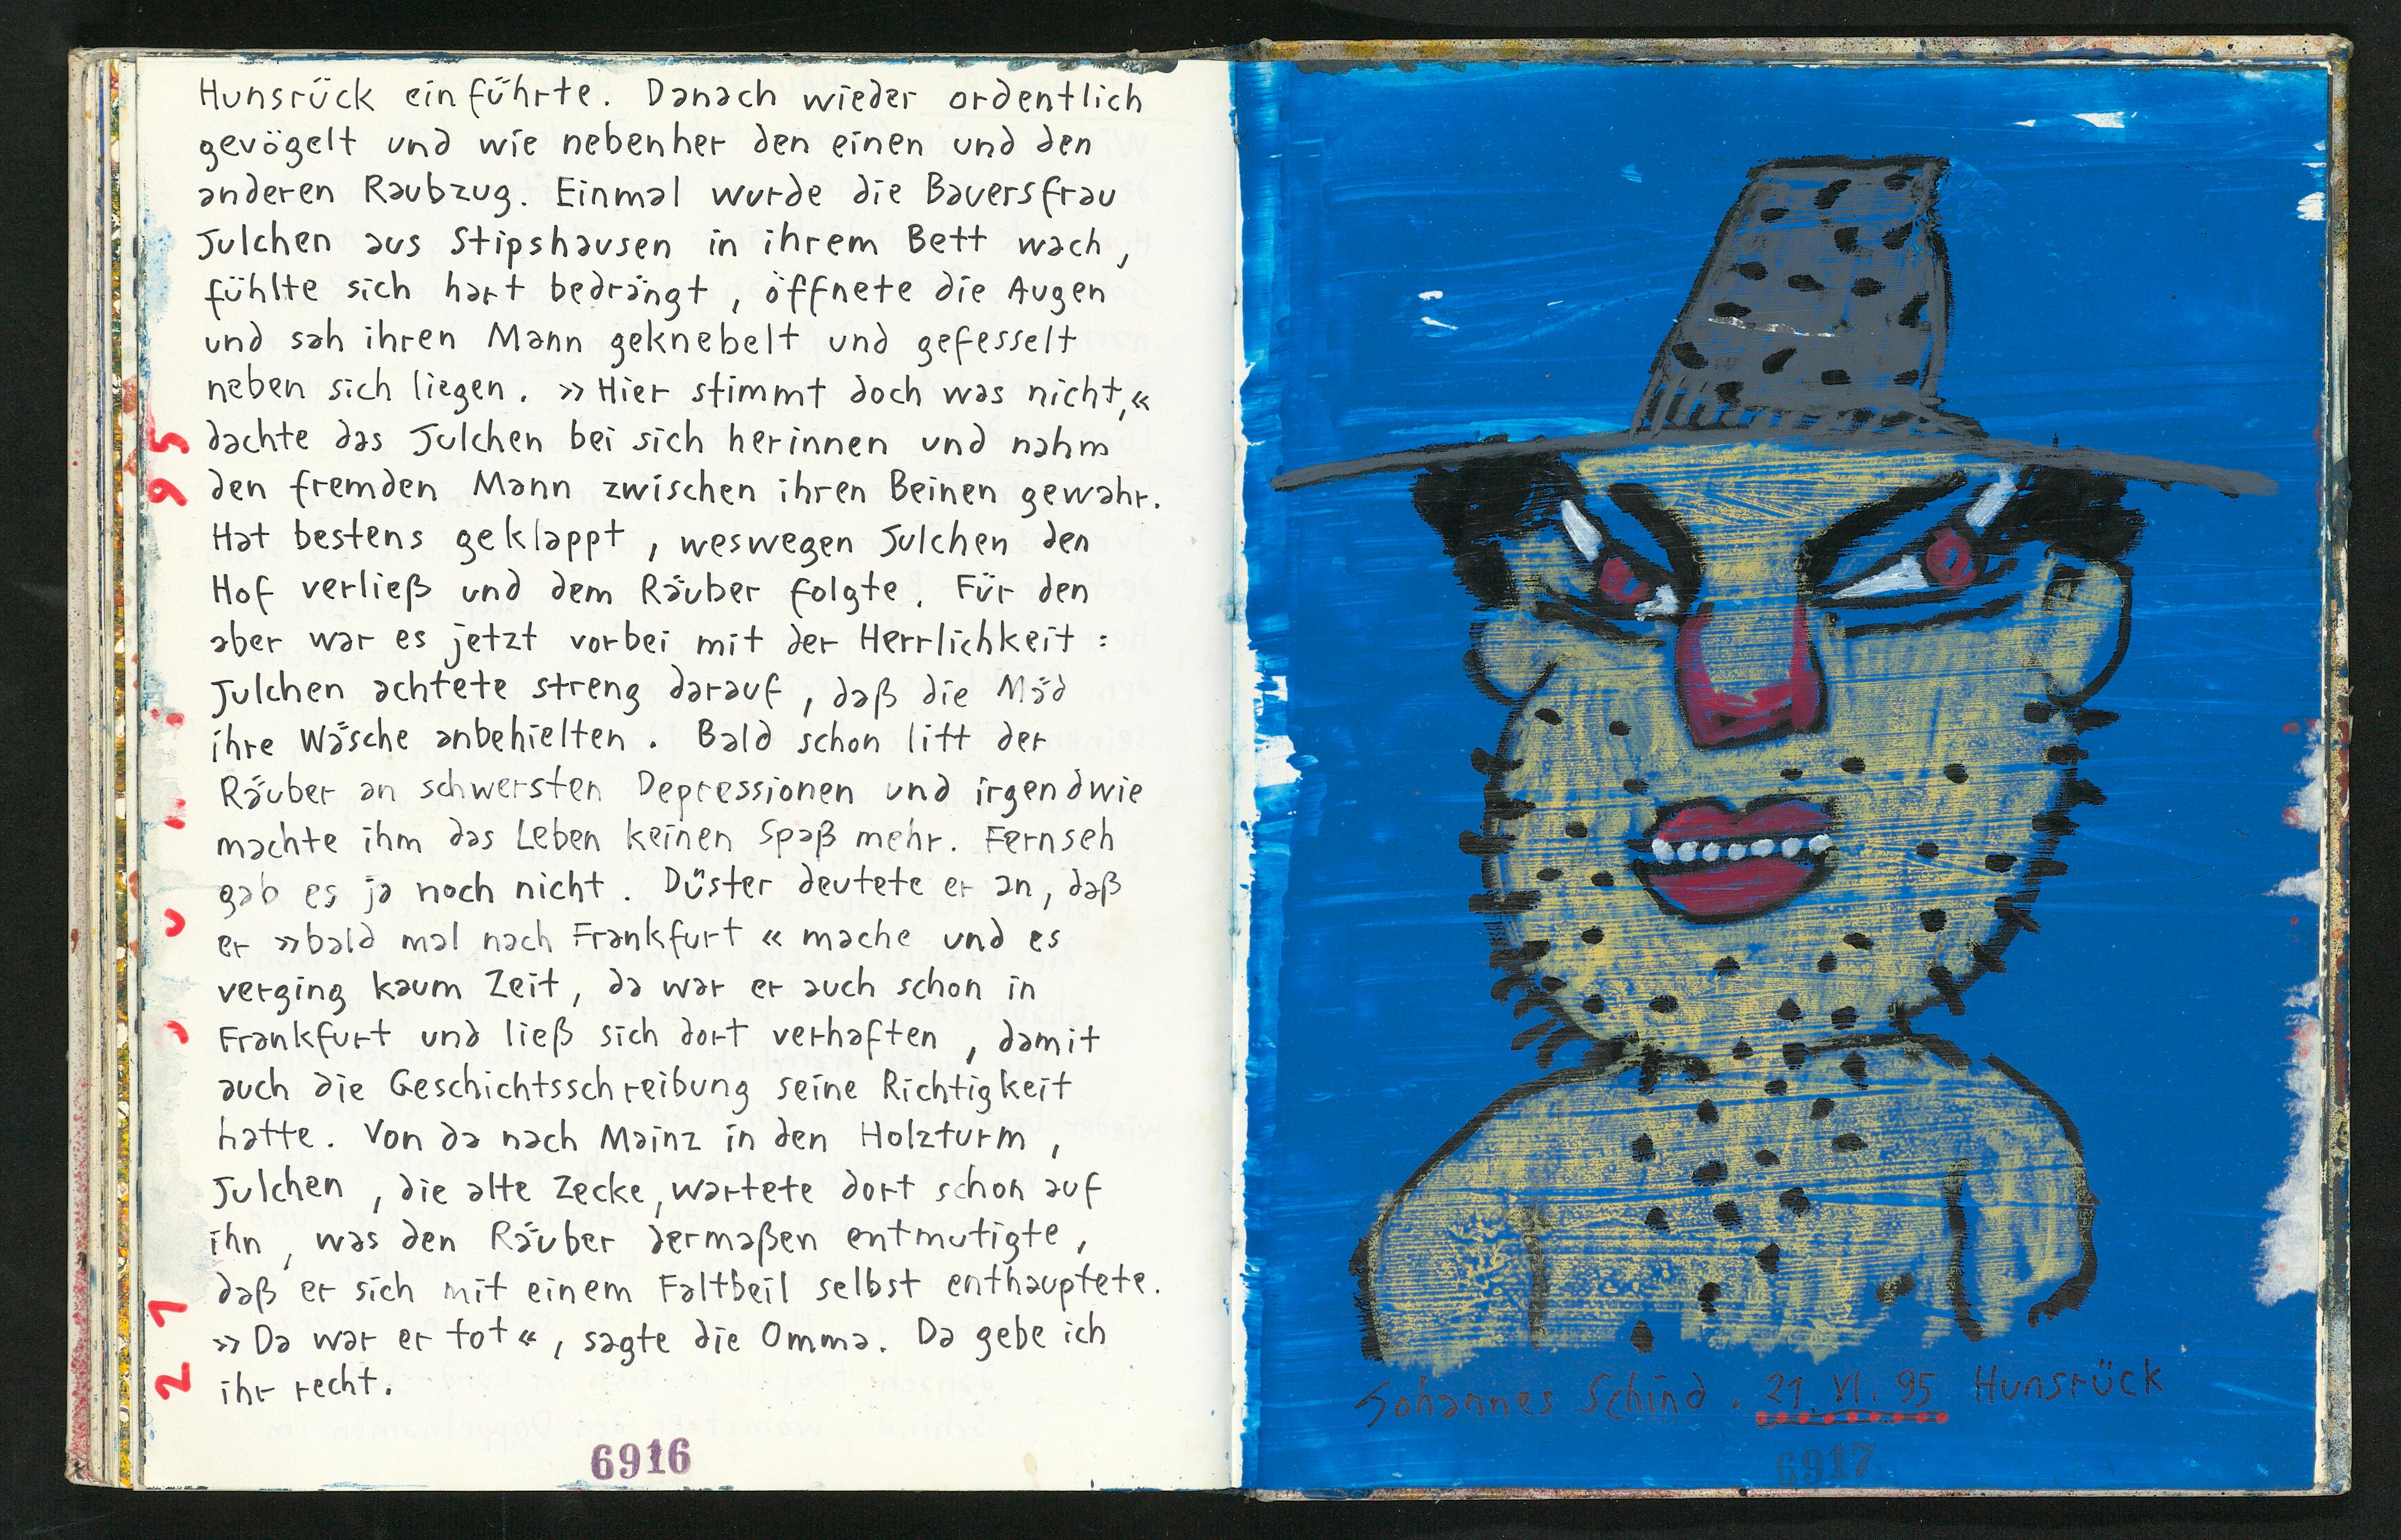 Hunsrück einführte. Danach wieder ordentlich
gevögelt und wie nebenher den einen und den
anderen Raubzug. Einmal wurde die Bauersfrau
Julchen aus Stipshausen in ihrem Bett wach,
fühlte sich hart bedrängt, öffnete die Augen
und sah ihren Mann geknebelt und gefesselt
neben sich liegen. »Hier stimmt doch was nicht,«
dachte das Julchen bei sich herinnen und nahm
den fremden Mann zwischen ihren Beinen gewahr.
Hat bestens geklappt, weswegen Julchen den
Hof verließ und dem Räuber folgte. Für den
aber war es jetzt vorbei mit der Herrlichkeit:
Julchen achtete streng darauf, daß die Mäd
ihre Wäsche anbehielten. Bald schon litt der
Räuber an schwersten Depressionen und irgendwie
machte ihm das Leben keinen Spaß mehr. Fernseh
gab es ja noch nicht. Düster deutete er an, daß
er »bald mal nach Frankfurt« mache und es
verging kaum Zeit, da war er auch schon in
Frankfurt und ließ sich dort verhaften, damit
auch die Geschichtsschreibung seine Richtigkeit
hatte. Von da nach Mainz in den Holzturm,
Julchen, die alte Zecke, wartete dort schon auf
ihn, was den Räuber dermaßen entmutigte,
daß er sich mit einem Faltbeil selbst enthauptete.
»Da war er tot«, sagte die Omma. Da gebe ich
ihr recht.
21 Juni 95
6916
Johannes Schind. 21. VI. 95 Hunsrück
6917